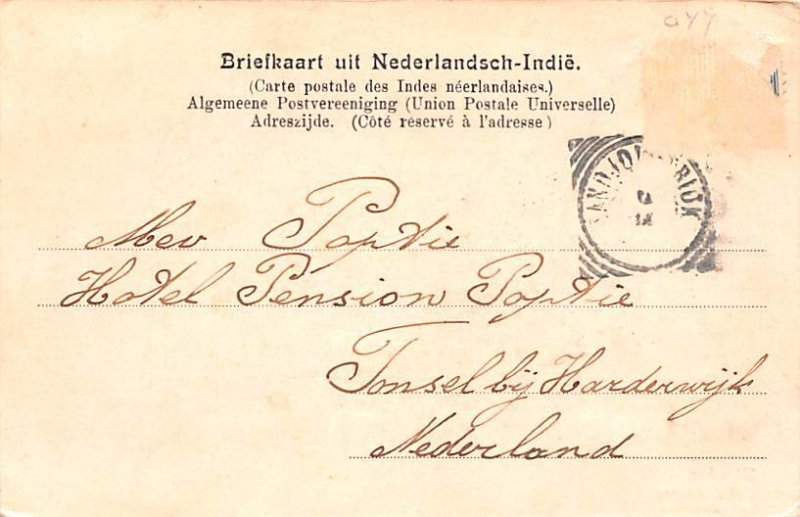 044
Briefkaart uit Nederlandsch-Indië.
(Carte postale des Indes néerlandaises.)
Algemeene Postvereeniging (Union Postale Universelle)
Adreszijde. (Côté reservé à l'adresse)
Mev Poptie
Hotel Pension Poptie
Tonsel bij Harderwijk
Nederland